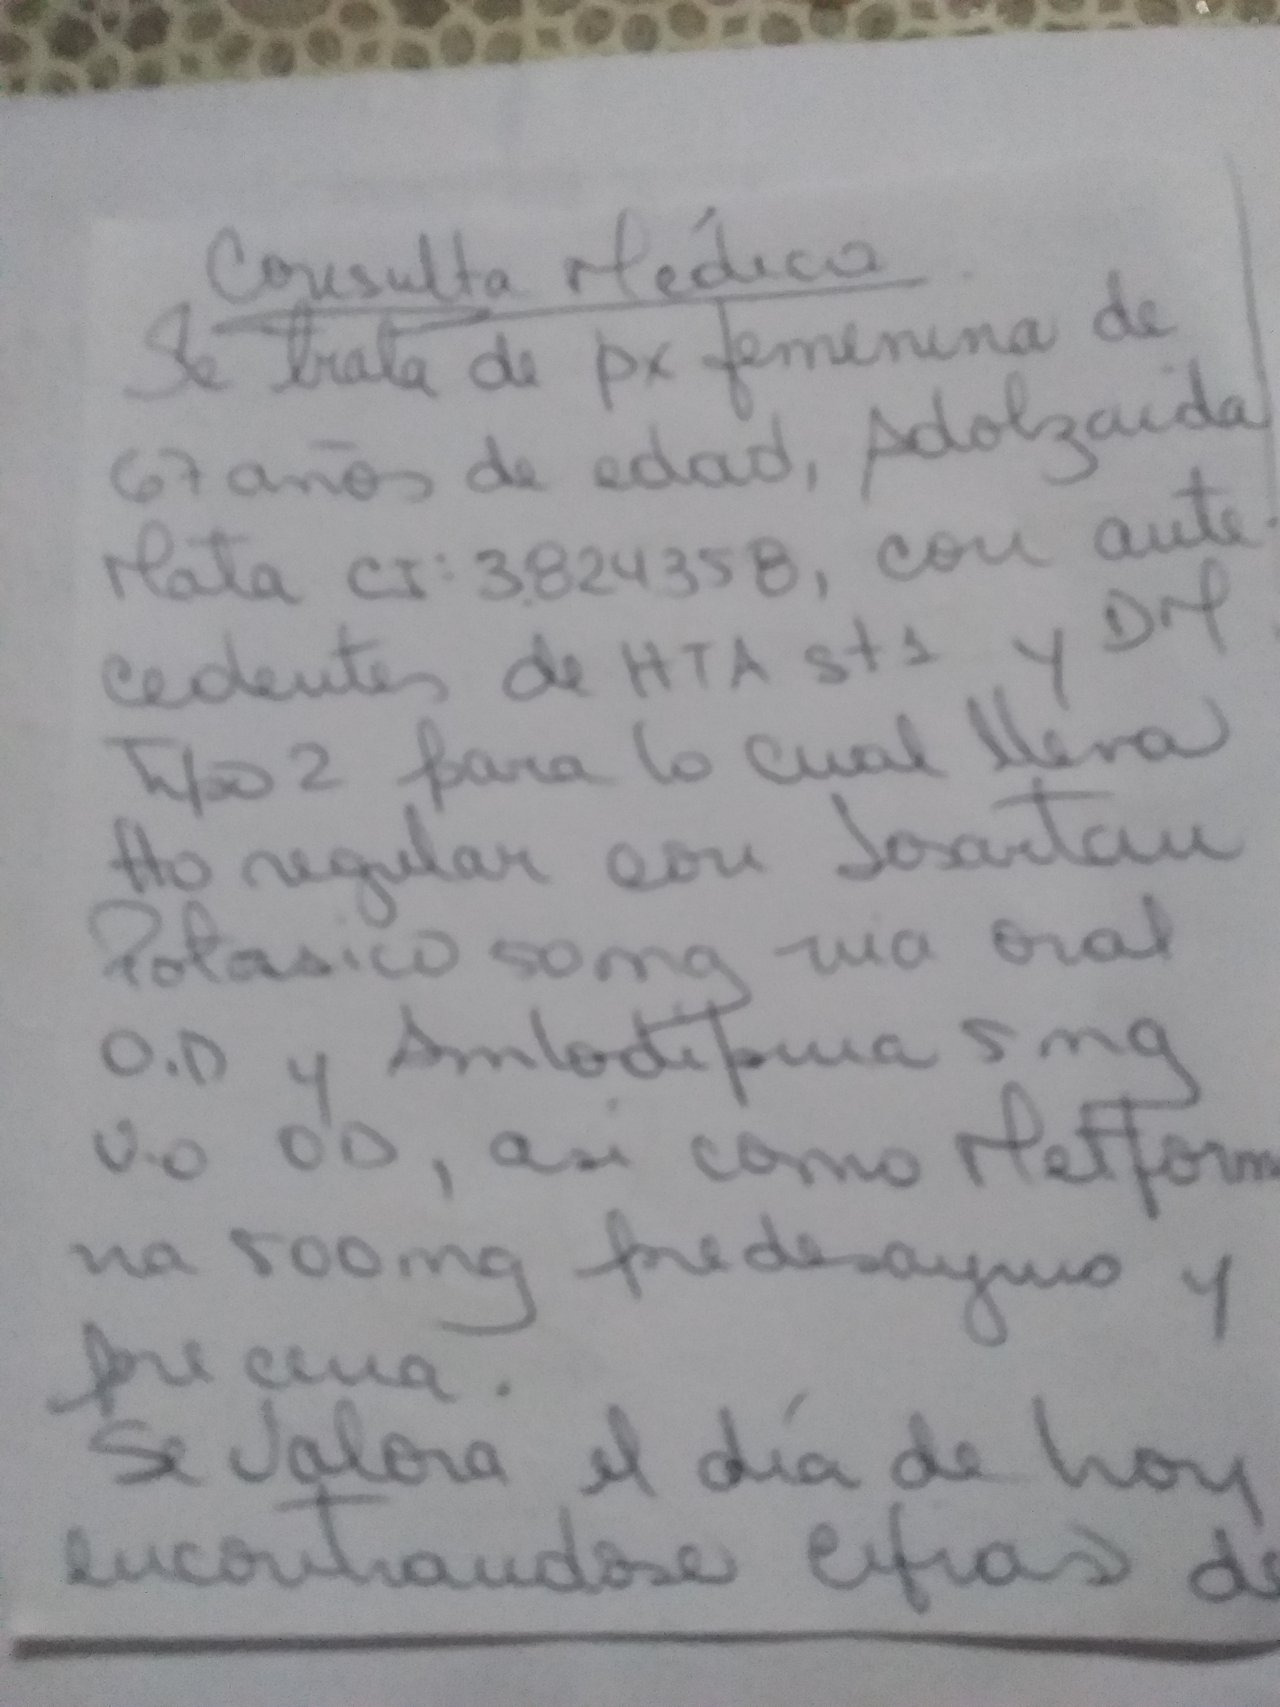 Consulta Médica
Se trata de px femenina de
67 años de edad, Adolzaida
Mata CI: 3.824358, con ante-
cedentes de HTA st 1 y DM
Tipo 2 para lo cual lleva
tto regular con Losartan
Potasico 50mg via oral
O.D y Amlodipina 5 mg
V.O OD, asi como Metformi
na 500mg predesayuno y
pre cena.
Se valora el día de hoy
encontrandose cifras de